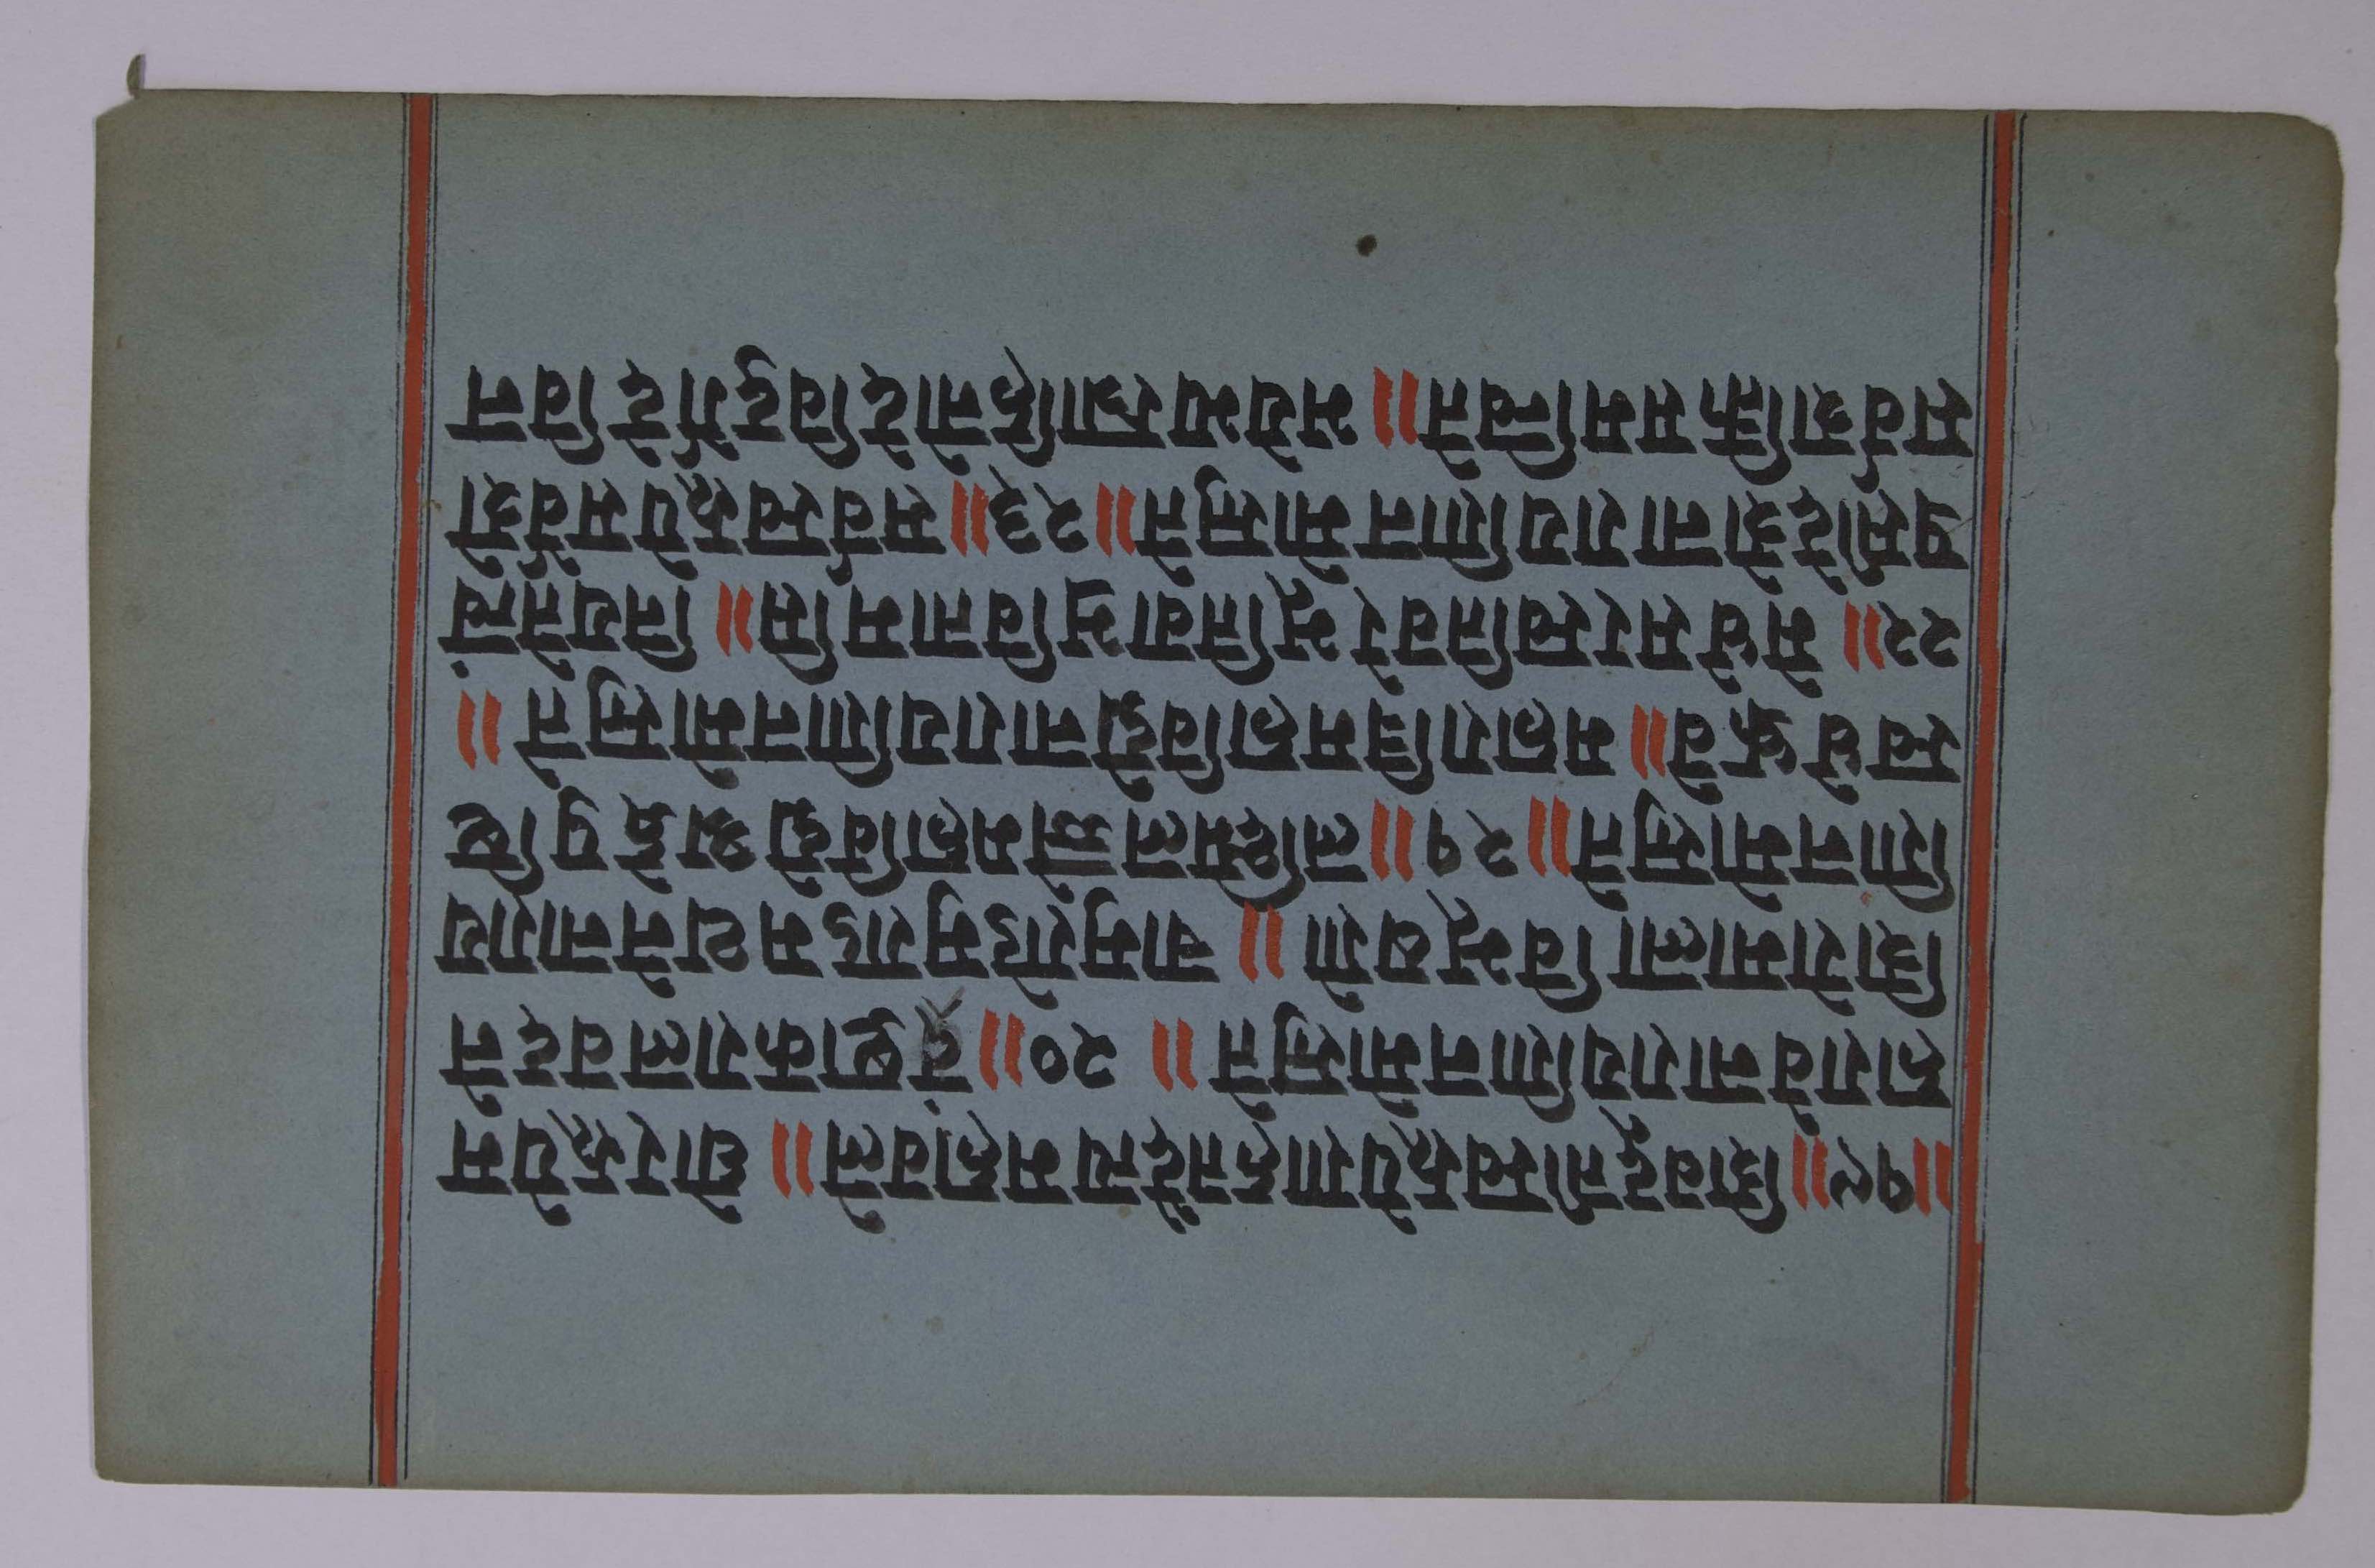 ॥१९॥ शिवदूतीस्वरूपेणहतदैत्यमहावले॥ घोररूपेम
हारावेनारायणिनमोस्तुते॥ २०॥ दंष्ट्राकरालवदने
शिरोमालाविभूषणे॥ चामुण्डेमुण्डमथनेनाराय
णिनमोस्तुते॥ २१॥ लक्ष्मिलज्जेमहाविद्येश्रद्धेपुष्टि
स्वधेध्रुवे॥ महारात्रिमहाविद्येनारायणिनमोस्तुते॥
२२॥ मेधेसरस्वतिवरेभूतिवाभ्रवितामसि॥ नियतेत्वं
प्रसीदेशेनारायणिनमोस्तुते॥ २३॥ सर्वस्वरूपेसर्वेशे
सर्वशक्तिसमन्विते॥ भयेभ्यस्त्राहिनोदेविदुर्गेदेविन